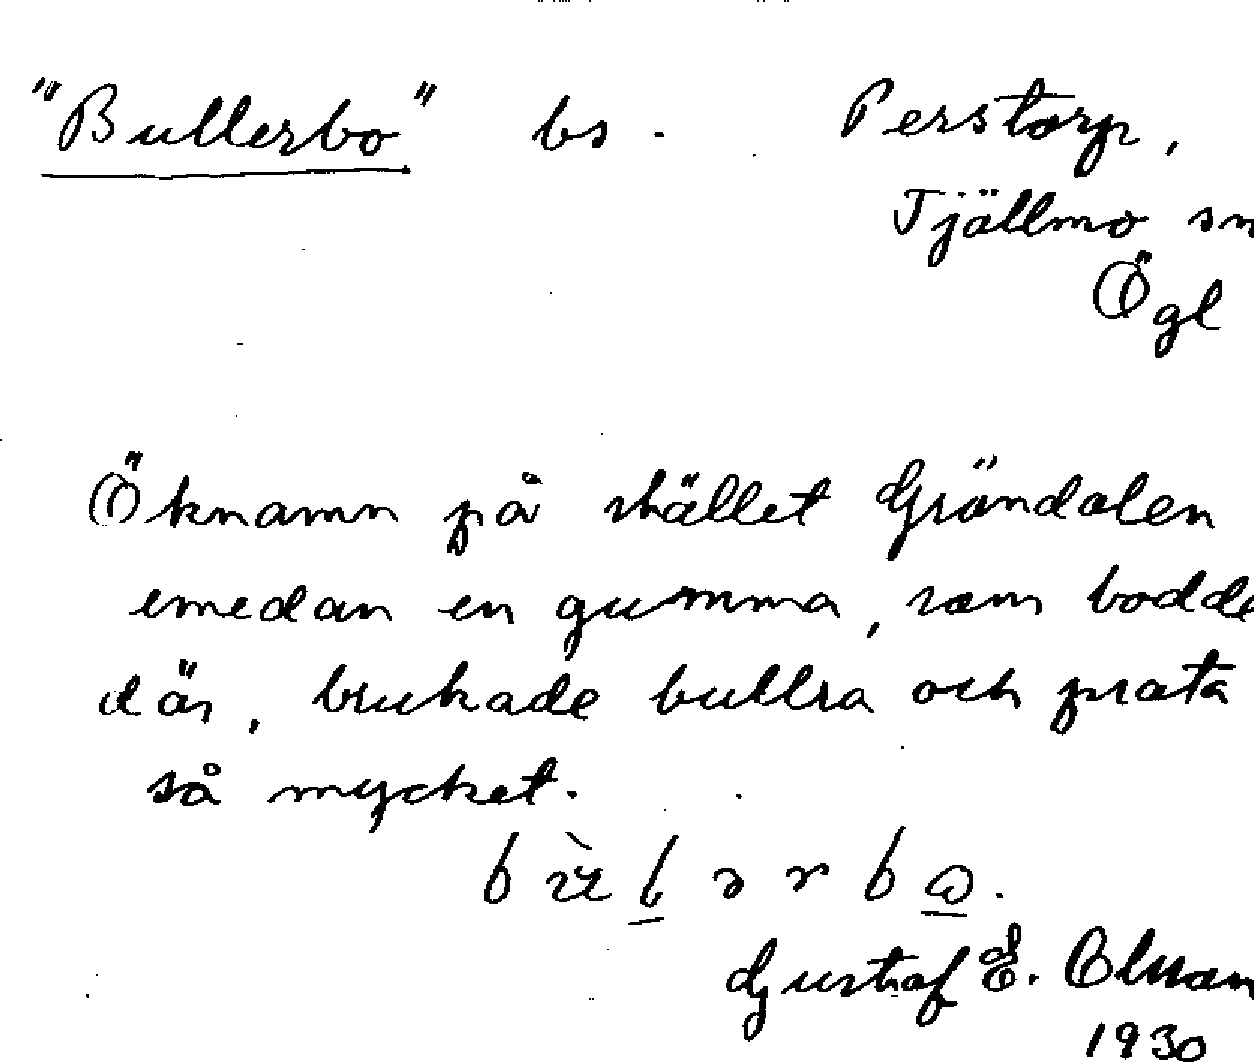 "Bullerbo" bs. Perstorp,
Tjällmo sn
Ögl
Öknamn på stället Gröndalen
emedan en gumma, som bodde
där, brukade bullra och prata
så mycket.
Gustaf E. Olsson
1930